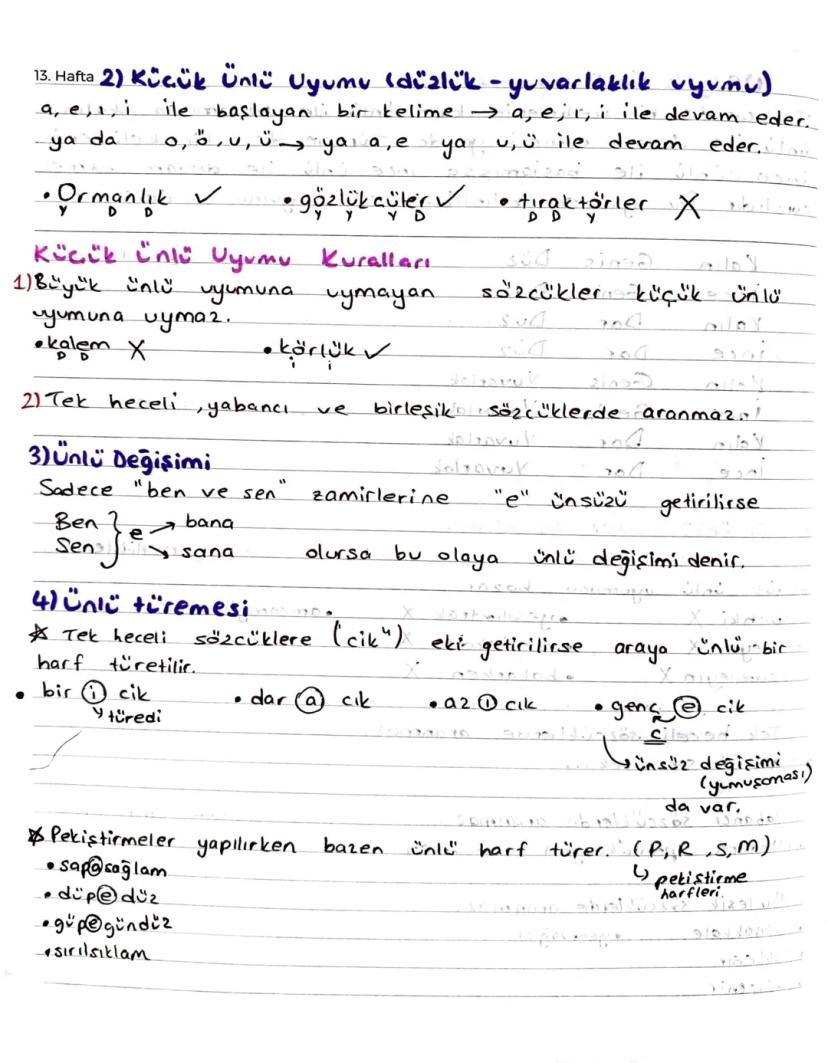 13. Hafta 2) Küçük Ünlü Uyumu (düzlük - yuvarlaklık uyumu)
a, e, ı, i ile başlayan bir kelime → a, e, ı, i ile devam eder.
ya da o, ö, u, ü → ya a, e ya u, ü ile devam eder.
• Ormanlık ✓ • gözlükçüler ✓ • tıraktörler X
Y D D Y Y Y D D D Y
Küçük Ünlü Uyumu Kuralları
1) Büyük ünlü uyumuna uymayan sözcükler küçük ünlü
uyumuna uymaz.
• kalem X • körlük ✓
D D i i
2) Tek heceli, yabancı ve birleşik sözcüklerde aranmaz.
3) Ünlü Değişimi
Sadece "ben ve sen" zamirlerine "e" ünsüzü getirilirse
Ben } e → bana
Sen → sana olursa bu olaya ünlü değişimi denir.
4) Ünlü türemesi
* Tek heceli sözcüklere ("cik") eki getirilirse araya ünlü bir
harf türetilir.
• bir i cik • dar a cık • az ı cık • genç e cik
türedi c
ünsüz değişimi
(yumuşaması)
da var.
* Pekiştirmeler yapılırken bazen ünlü harf türer. (P, R, S, M)
• sapasağlam pekiştirme
harfleri.
• düpedüz
• güpegündüz
• sırılsıklam